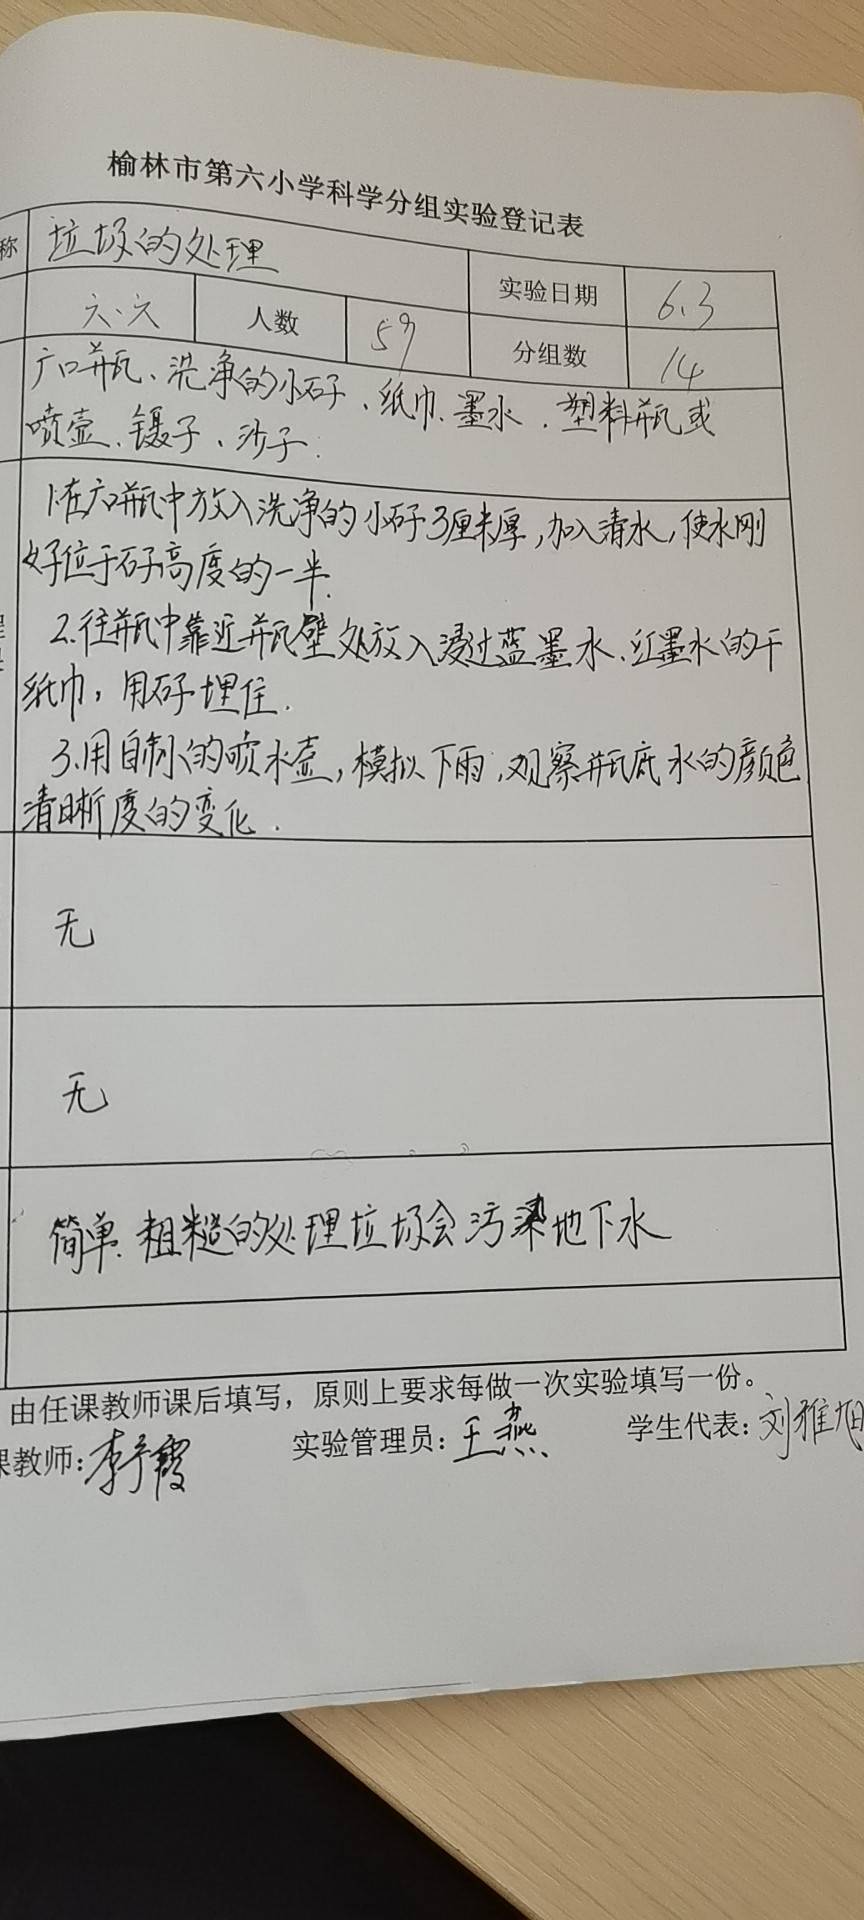 榆林市第六小学科学分组实验登记表
称 垃圾的处理 实验日期 6.3
六.六 人数 59 分组数 14
广口瓶、洗净的小石子、纸巾、墨水、塑料瓶或
喷壶、镊子、沙子.
1.在广口瓶中放入洗净的小石子3厘米厚,加入清水,使水刚
好位于石子高度的一半.
2.往瓶中靠近瓶壁处放入浸过蓝墨水、红墨水的干
纸巾,用石子埋住.
3.用自制的喷水壶,模拟下雨,观察瓶底水的颜色
清晰度的变化.
无
无
简单.粗糙的处理垃圾会污染地下水
由任课教师课后填写,原则上要求每做一次实验填写一份。
课教师: 实验管理员:王燕 学生代表:刘雅旭